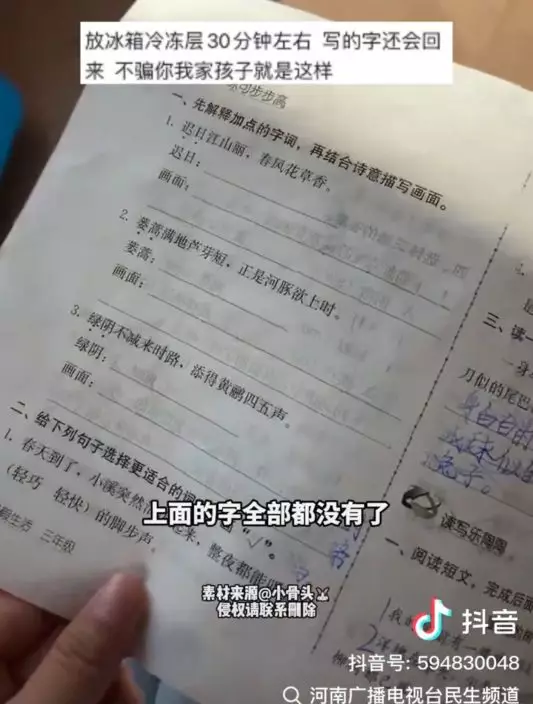 放冰箱冷冻层30分钟左右 写的字还会回
来 不骗你我家孩子就是这样
一、先解释加点的字词,再结合诗意描写画面。
1. 迟日江山丽,春风花草香。
迟日:
画面:
2. 蒌蒿满地芦芽短,正是河豚欲上时。
蒌蒿:
画面:
3. 绿阴不减来时路,添得黄鹏四五声。
绿阴:
画面:
二、给下列句子选择更适合的词
“√”。
1. 春天到了,小溪突然
起来,整夜都能
(轻巧 轻快)的脚步声。
三年级
三、读一
刀似的尾巴
兔子。
读写乐陶陶
一、阅读短文,完成后面
上面的字全部都没有了
素材来源@小骨头
侵权请联系删除
抖音
抖音号: 594830048
河南广播电视台民生频道